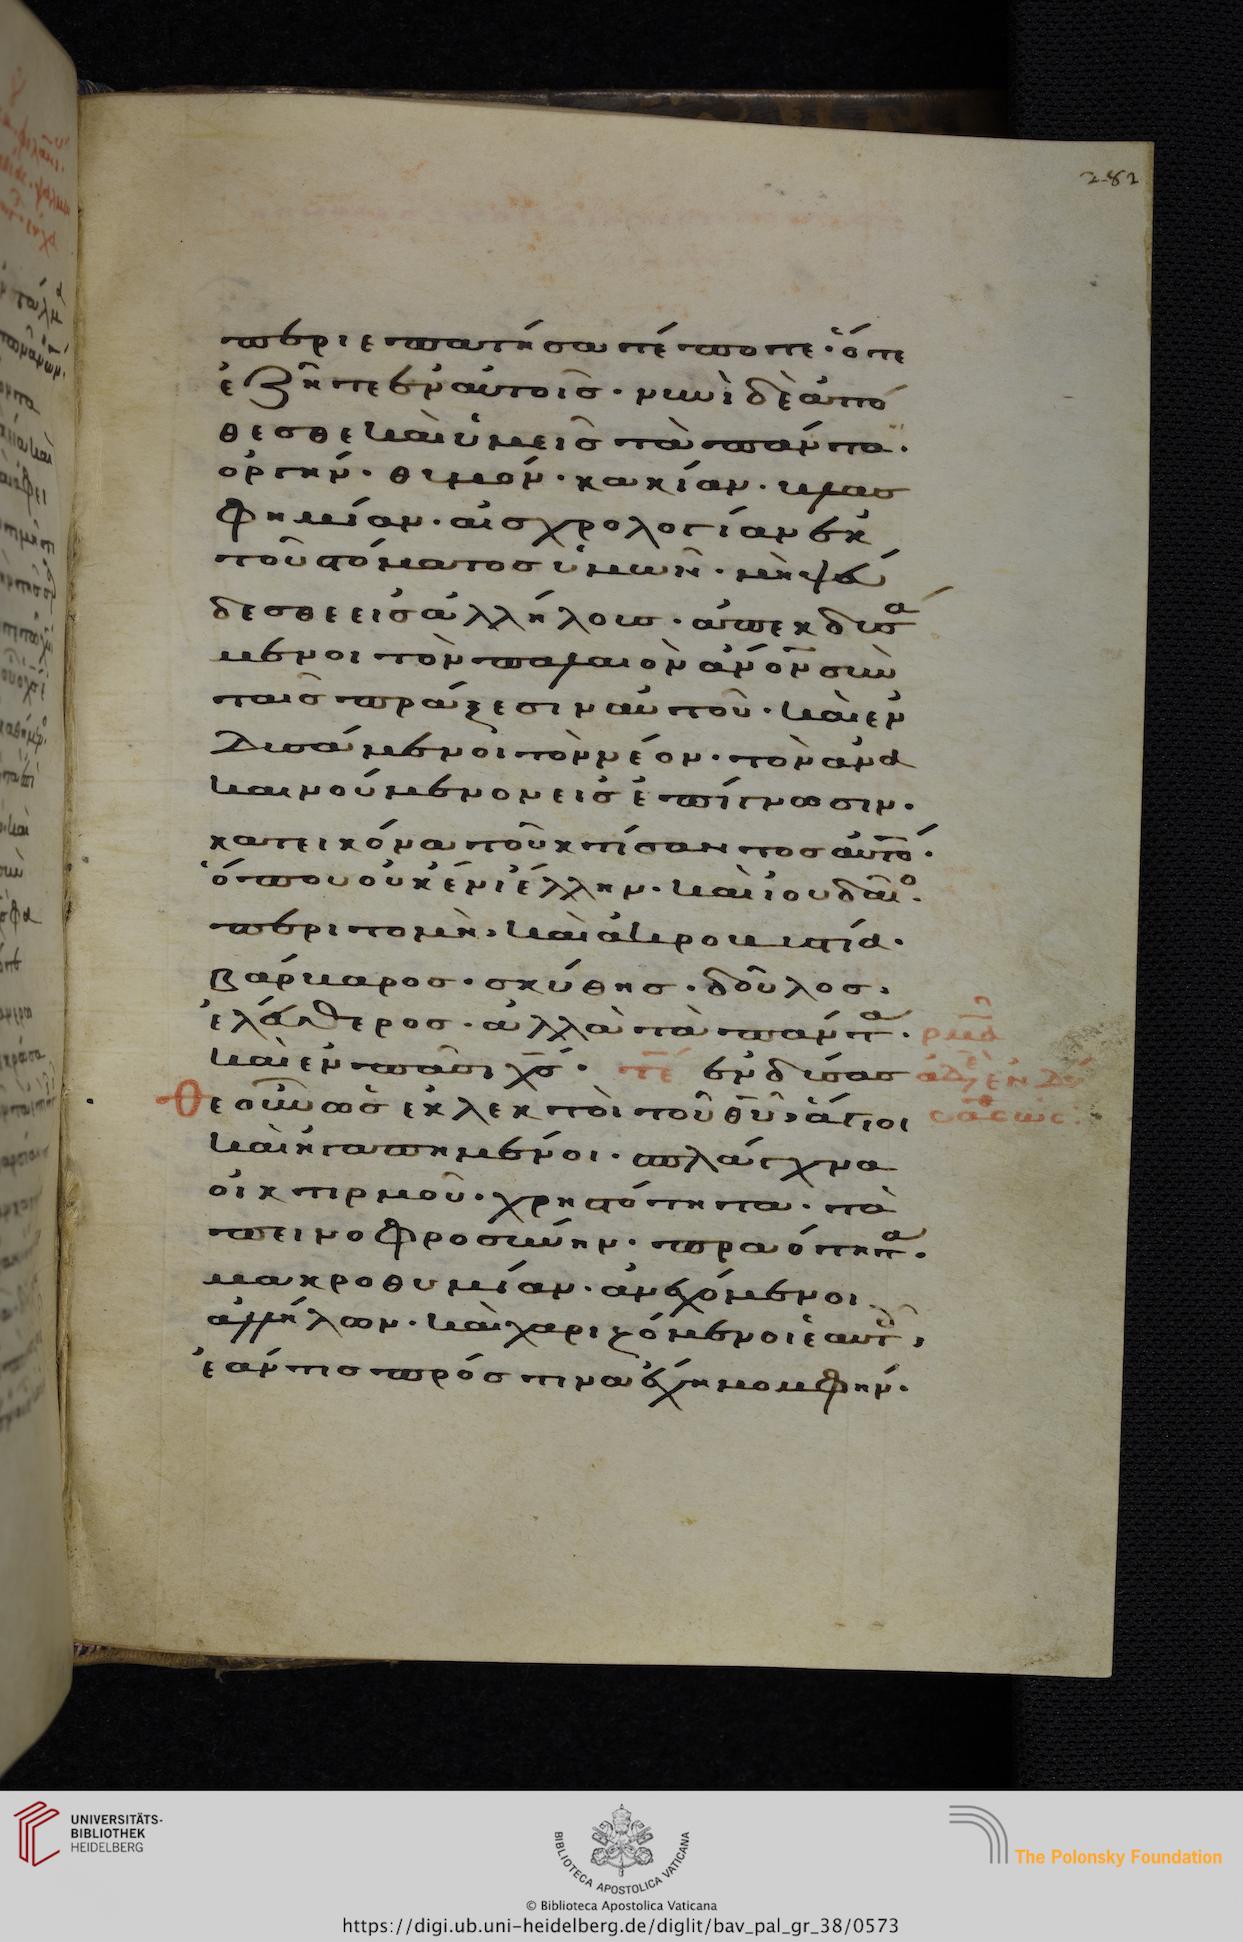 282
περιεπατήσατέ ποτε· ὅτε
ἐζῆτε ἐν αὐτοῖς· νυνὶ δὲ ἀπό
θεσθε καὶ ὑμεῖς τὰ πάντα·
ὀργήν· θυμόν· κακίαν· βλασ
φημίαν· αἰσχρολογίαν ἐκ
τοῦ στόματος ὑμῶν· μὴ ψεύ
δεσθε εἰς ἀλλήλους· ἀπεκδυσά
μενοι τὸν παλαιὸν ἄνον σὺν
ταῖς πράξεσιν αὐτοῦ· καὶ ἐν
δυσάμενοι τὸν νέον· τὸν ἀνα
καινούμενον εἰς ἐπίγνωσιν·
κατεικόνα τοῦ κτίσαντος αὐτό·
ὅπου οὐκ ἔνι ἕλλην· καὶ ἰουδαῖο·
περιτομὴ· καὶ ἀκροβυστία·
βάρβαρος· σκύθης· δοῦλος·
ἐλεύθερος· ἀλλὰ τὰ πάντα·
καὶ ἐν πᾶσι χς· τέ ἐνδύσασ
θε οὖν ὡς ἐκλεκτοὶ τοῦ θυ, ἅγιοι
καὶ ἠγαπημένοι· σπλάγχνα
οἰκτιρμοῦ· χρηστότητα· τα
πεινοφροσύνην· πραότητα·
μακροθυμίαν· ἀνεχόμενοι
ἀλλήλων· καὶ χαριζόμενοι ἑαυτ,
ἐάν τις πρός τινα ἔχῃ μομφήν·
UNIVERSITÄTS-
BIBLIOTHEK
HEIDELBERG
BIBLIOTECA APOSTOLICA VATICANA
The Polonsky Foundation
© Biblioteca Apostolica Vaticana
https://digi.ub.uni-heidelberg.de/diglit/bav_pal_gr_38/0573